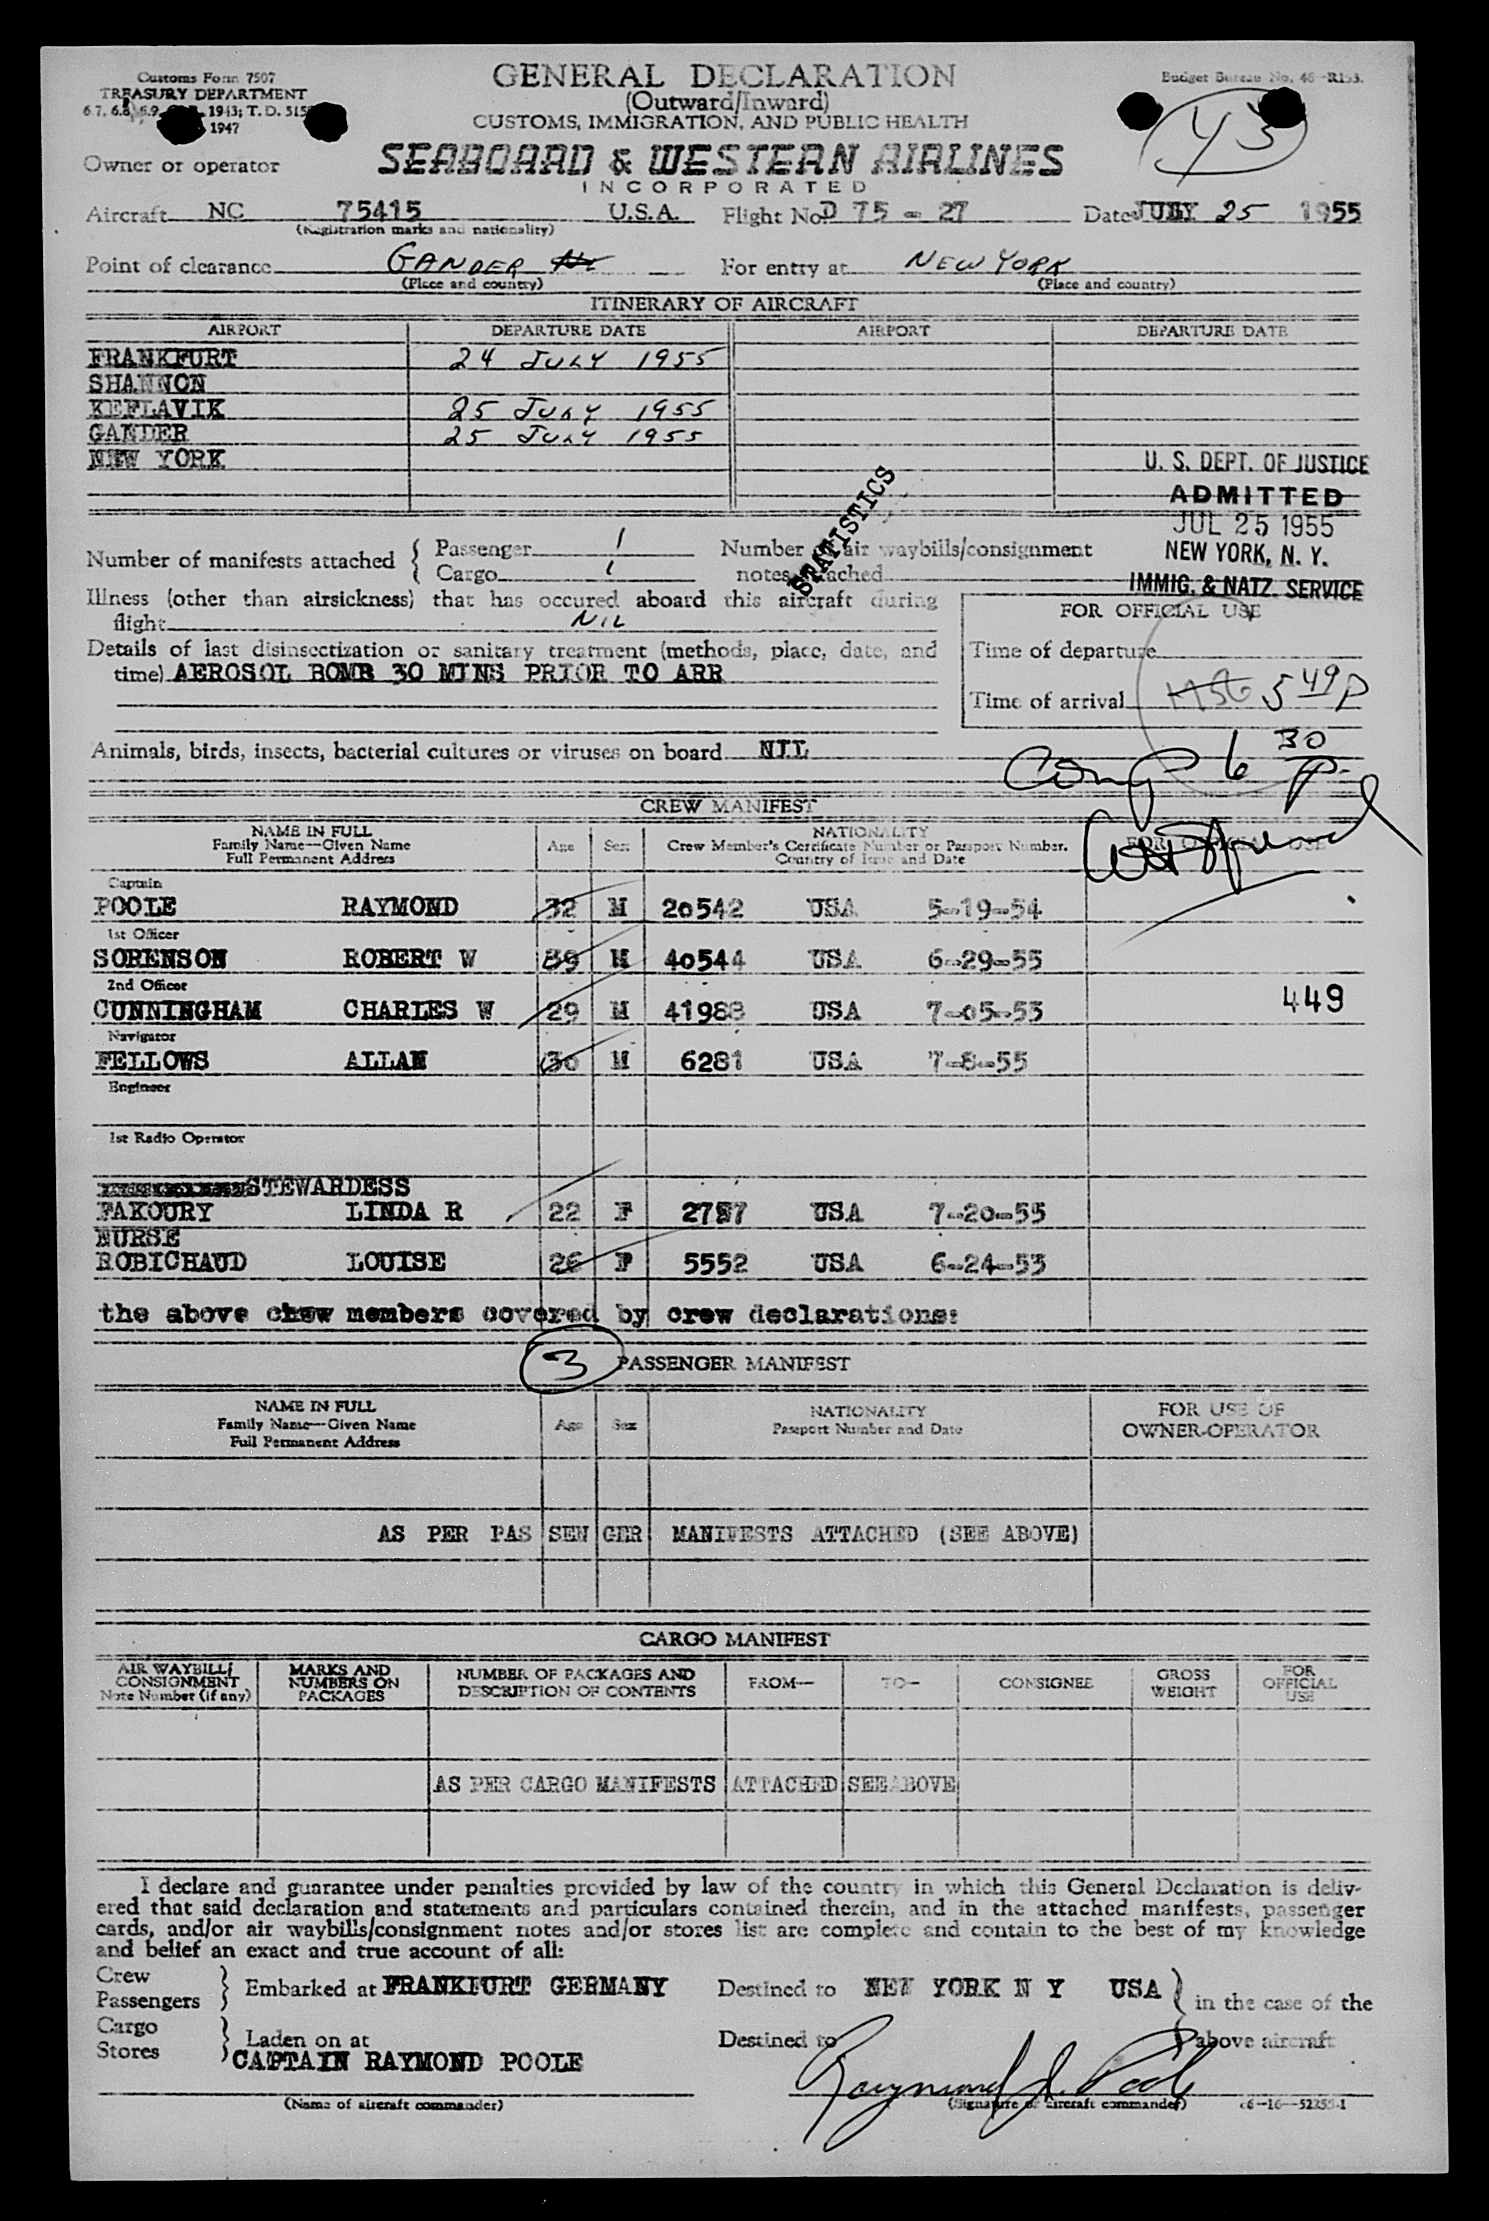 Customs Form 7507
TREASURY DEPARTMENT
1943; T. D.
1947
GENERAL DECLARATION
(Outward/Inward)
CUSTOMS, IMMIGRATION, AND PUBLIC HEALTH
Budget Bureau No.
43
Owner or operator
SEABOARD & WESTERN AIRLINES
INCORPORATED
Aircraft NC 75415 U.S.A. Flight No. D 75 - 27 Date JULY 25 1955
(Registration marks and nationality)
Point of clearance GANDER For entry at NEW YORK
(Place and country) (Place and country)
ITINERARY OF AIRCRAFT
AIRPORT DEPARTURE DATE AIRPORT DEPARTURE DATE
FRANKFURT 24 JULY 1955
SHANNON
KEFLAVIK 25 JULY 1955
GANDER 25 JULY 1955
NEW YORK
U. S. DEPT. OF JUSTICE
ADMITTED
JUL 25 1955
NEW YORK, N. Y.
IMMIG. & NATZ. SERVICE
STATISTICS
Number of manifests attached { Passenger 1
Cargo 1
Number of air waybills/consignment
notes attached
Illness (other than airsickness) that has occured aboard this aircraft during
flight NIL
Details of last disinsectization or sanitary treatment (methods, place, date, and
time) AEROSOL BOMB 30 MINS PRIOR TO ARR
FOR OFFICIAL USE
Time of departure
Time of arrival 5 49 P
Animals, birds, insects, bacterial cultures or viruses on board NIL
Comp 6 30 P.
CREW MANIFEST
NAME IN FULL
Family Name—Given Name
Full Permanent Address
Age Sex
NATIONALITY
Crew Member's Certificate Number or Passport Number.
Country of Issue and Date
FOR OFFICIAL USE
Captain
POOLE RAYMOND 32 M 20542 USA 5-19-54
1st Officer
SORENSON ROBERT W 39 M 40544 USA 6-29-55
2nd Officer
CUNNINGHAM CHARLES W 29 M 41988 USA 7-05-55
449
Navigator
FELLOWS ALLAN 30 M 6281 USA 7-8-55
Engineer
1st Radio Operator
STEWARDESS
FAKOURY LINDA R 22 F 2757 USA 7-20-55
NURSE
ROBICHAUD LOUISE 26 F 5552 USA 6-24-55
the above crew members covered by crew declarations:
3 PASSENGER MANIFEST
NAME IN FULL
Family Name—Given Name
Full Permanent Address
Age Sex
NATIONALITY
Passport Number and Date
FOR USE OF
OWNER-OPERATOR
AS PER PAS SEN GER MANIFESTS ATTACHED (SEE ABOVE)
CARGO MANIFEST
AIR WAYBILL/
CONSIGNMENT
Note Number (if any)
MARKS AND
NUMBERS ON
PACKAGES
NUMBER OF PACKAGES AND
DESCRIPTION OF CONTENTS
FROM— TO— CONSIGNEE
GROSS
WEIGHT
FOR
OFFICIAL
USE
AS PER CARGO MANIFESTS ATTACHED SEE ABOVE
I declare and guarantee under penalties provided by law of the country in which this General Declaration is deliv-
ered that said declaration and statements and particulars contained therein, and in the attached manifests, passenger
cards, and/or air waybills/consignment notes and/or stores list are complete and contain to the best of my knowledge
and belief an exact and true account of all:
Crew
Passengers } Embarked at FRANKFURT GERMANY Destined to NEW YORK N Y USA } in the case of the
Cargo
Stores } Laden on at Destined to above aircraft
CAPTAIN RAYMOND POOLE Raymond J. Poole
(Name of aircraft commander) (Signature of aircraft commander)